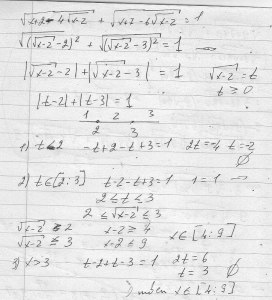 √x+2-4√x-2 + √x+7-6√x-2 = 1
√(√x-2-2)² + √(√x-2-3)² = 1
|√x-2-2| + |√x-2-3| = 1 √x-2=t
t≥0
|t-2|+|t-3|=1
1 2 3
2 3
1) t<2 -t+2-t+3=1 2t=-4 t=-2
∅
2) t∈[2;3) t-2-t+3=1 1=1
2≤t≤3
2≤√x-2≤3
√x-2≥2 x-2≥4
√x-2≤3 x-2≤9 x∈[4;9]
3) x>3 t-2+t-3=1 2t=6
t=3 ∅
x∈[4;9]